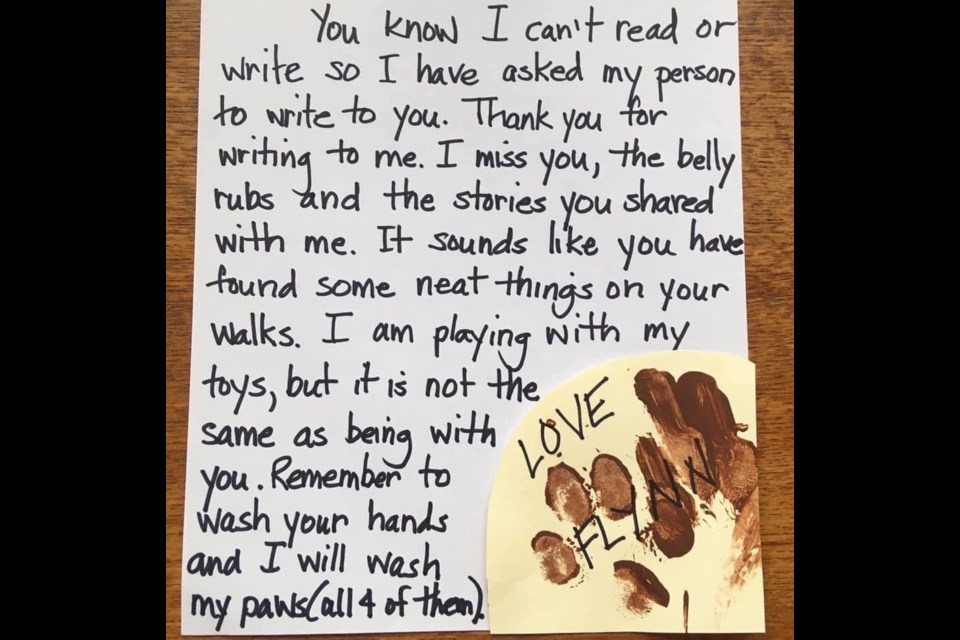 You know I can't read or
write so I have asked my person
to write to you. Thank you for
writing to me. I miss you, the belly
rubs and the stories you shared
with me. It sounds like you have
found some neat things on your
walks. I am playing with my
toys, but it is not the
same as being with
you. Remember to
wash your hands
and I will wash
my paws (all 4 of them).
LOVE
FLYNN